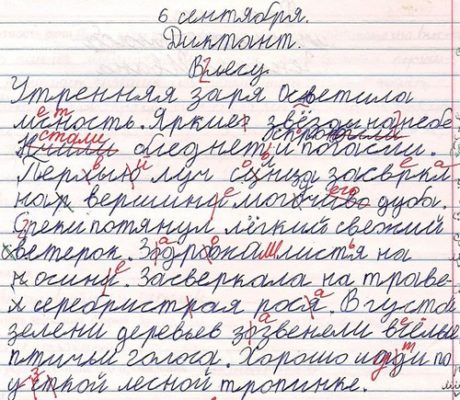 6 сентября.
Диктант.
В лесу.
Утренняя заря осветила
месность. Яркие звёзды на небе
стали бледнеть и погасли.
Первый луч солнца засверкал
на вершине могучего дуба.
С реки потянул лёгкий свежий
ветерок. Задрожали листья на
осине. Засверкала на траве
серебристая роса. В густой
зелени деревьев зазвенели весёлые
птичьи голоса. Хорошо идти по
узкой лесной тропинке.